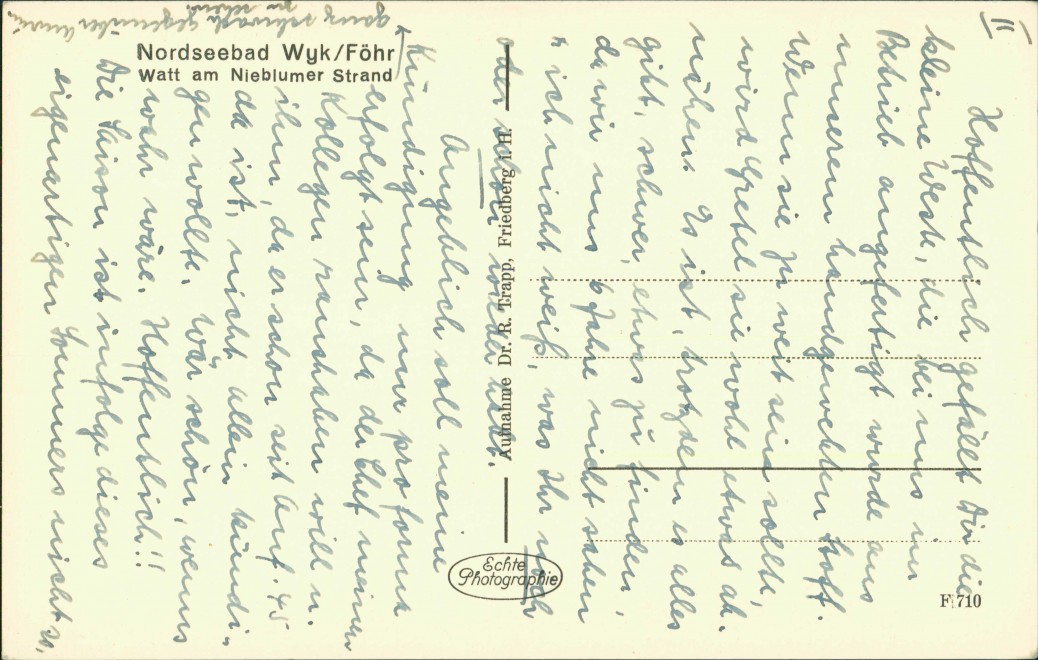 II
Hoffentlich gefällt Dir die
kleine Weste, die bei uns im
Betrieb angefertigt wurde aus
unserem handgewebten Stoff.
Wenn sie zu weit sein sollte,
wird Gretel sie wohl etwas ab-
nähen. Es ist, trotzdem es alles
gibt, schwer, etwas zu finden,
da wir uns 6 Jahre nicht sahen
u. ich nicht weiß, was Ihr noch
oder schon wieder habt.
Angeblich soll meine
Kündigung nur pro forma
erfolgt sein, da der Chef meinen
Kollegen raushaben will u.
ihm, da er schon seit Anf. 45
da ist, nicht allein kündi-
gen wollte. Wär schön, wenns
wahr wäre. Hoffentlich!!
Die Saison ist infolge dieses
eigenartigen Sommers nicht so
ganz schwach gegenüber
Nordseebad Wyk/Föhr
Watt am Nieblumer Strand
Aufnahme Dr. R. Trapp, Friedberg i. H.
Echte
Photographie
F 710